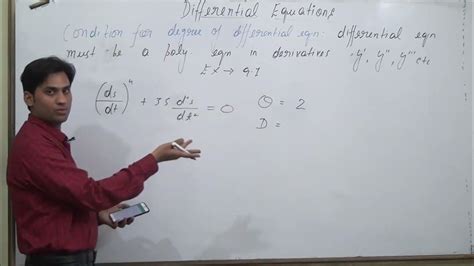 Differential Equations
Condition for degree of differential eqn: differential eqn
must be a poly. eqn in derivatives y', y'', y''' etc
Ex → 9.1
(ds/dt)⁴ + 3s d²s/dt² = 0 O = 2
D =